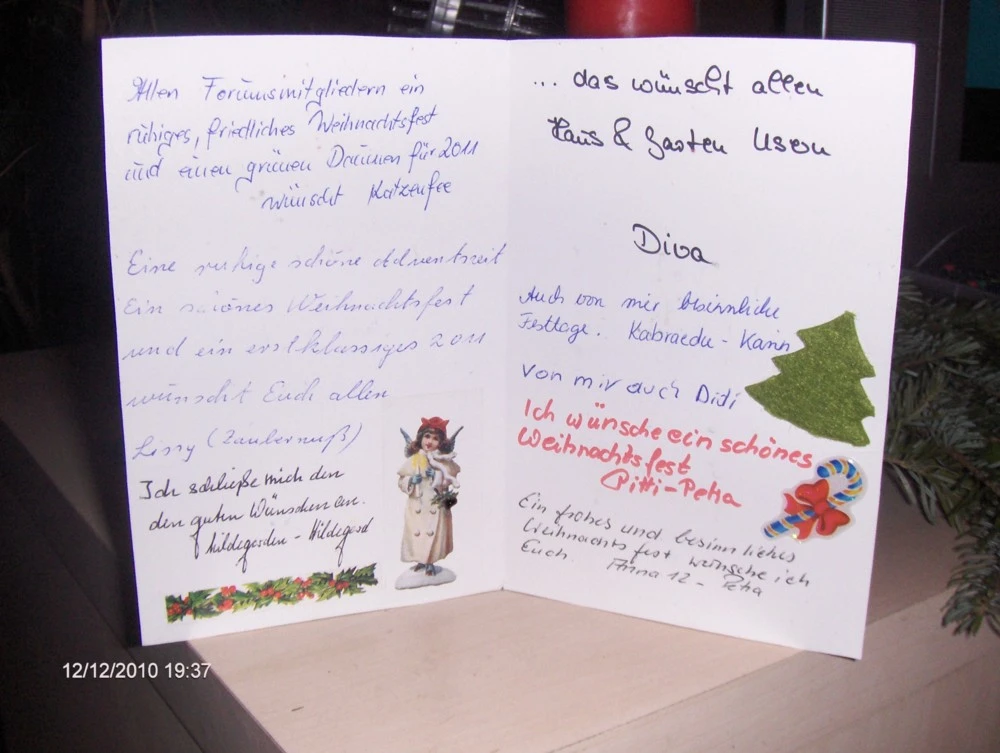 Allen Forumsmitgliedern ein
ruhiges, friedliches Weihnachtsfest
und einen grünen Daumen für 2011
wünscht Katzenfee
Eine ruhige schöne Adventszeit
Ein schönes Weihnachtsfest
und ein erstklassiges 2011
wünscht Euch allen
Lissy (Zaubernuß)
Ich schließe mich den
den guten Wünschen an.
hildegarden - Hildegard
... das wünscht allen
Haus & Garten Usern
Diva
Auch von mir besinnliche
Festtage. Kabraedu - Karin
von mir auch Didi
Ich wünsche ein schönes
Weihnachtsfest
Pitti-Petra
Ein frohes und besinnliches
Weihnachtsfest wünsche ich
Euch Anna 12 - Petra
12/12/2010 19:37